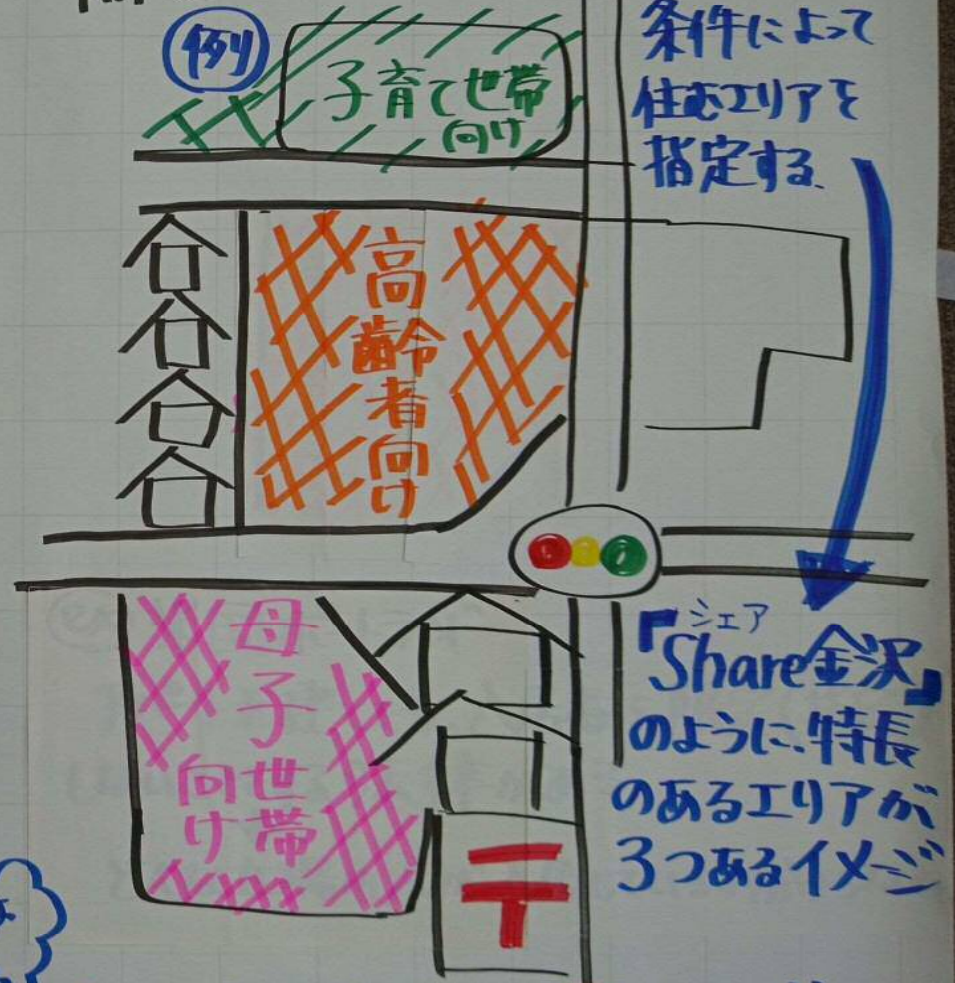 例
子育て世帯
向け
条件によって
住むエリアを
指定する
高齢者向け
母子世帯
向け
シェア
『Share金沢』
のように、特長
のあるエリアが
3つあるイメージ
〒